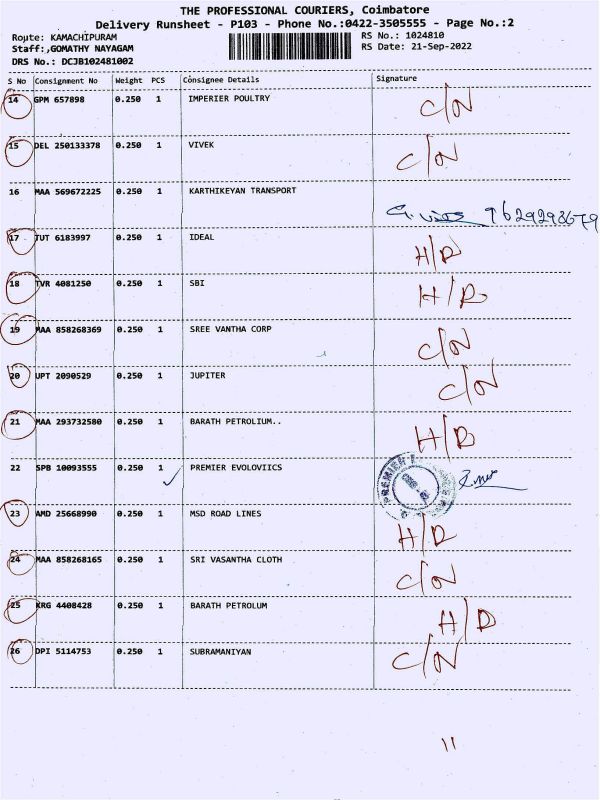 THE PROFESSIONAL COURIERS, Coimbatore
Delivery Runsheet - P103 - Phone No.:0422-3505555 - Page No.:2
Route: KAMACHIPURAM RS No.: 1024810
Staff:,GOMATHY NAYAGAM RS Date: 21-Sep-2022
DRS No.: DCJB102481002
S No Consignment No Weight PCS Consignee Details Signature
14 GPM 657898 0.250 1 IMPERIER POULTRY C/N
15 DEL 250133378 0.250 1 VIVEK C/N
16 MAA 569672225 0.250 1 KARTHIKEYAN TRANSPORT
17 TUT 6183997 0.250 1 IDEAL H/D
18 TVR 4081250 0.250 1 SBI H/D
19 MAA 858268369 0.250 1 SREE VANTHA CORP C/N
20 UPT 2090529 0.250 1 JUPITER C/N
21 MAA 293732580 0.250 1 BARATH PETROLIUM.. H/D
22 SPB 10093555 0.250 1 PREMIER EVOLOVIICS PREMIER
23 AMD 25668990 0.250 1 MSD ROAD LINES H/D
24 MAA 858268165 0.250 1 SRI VASANTHA CLOTH C/N
25 KRG 4408428 0.250 1 BARATH PETROLUM H/D
26 DPI 5114753 0.250 1 SUBRAMANIYAN C/N
11